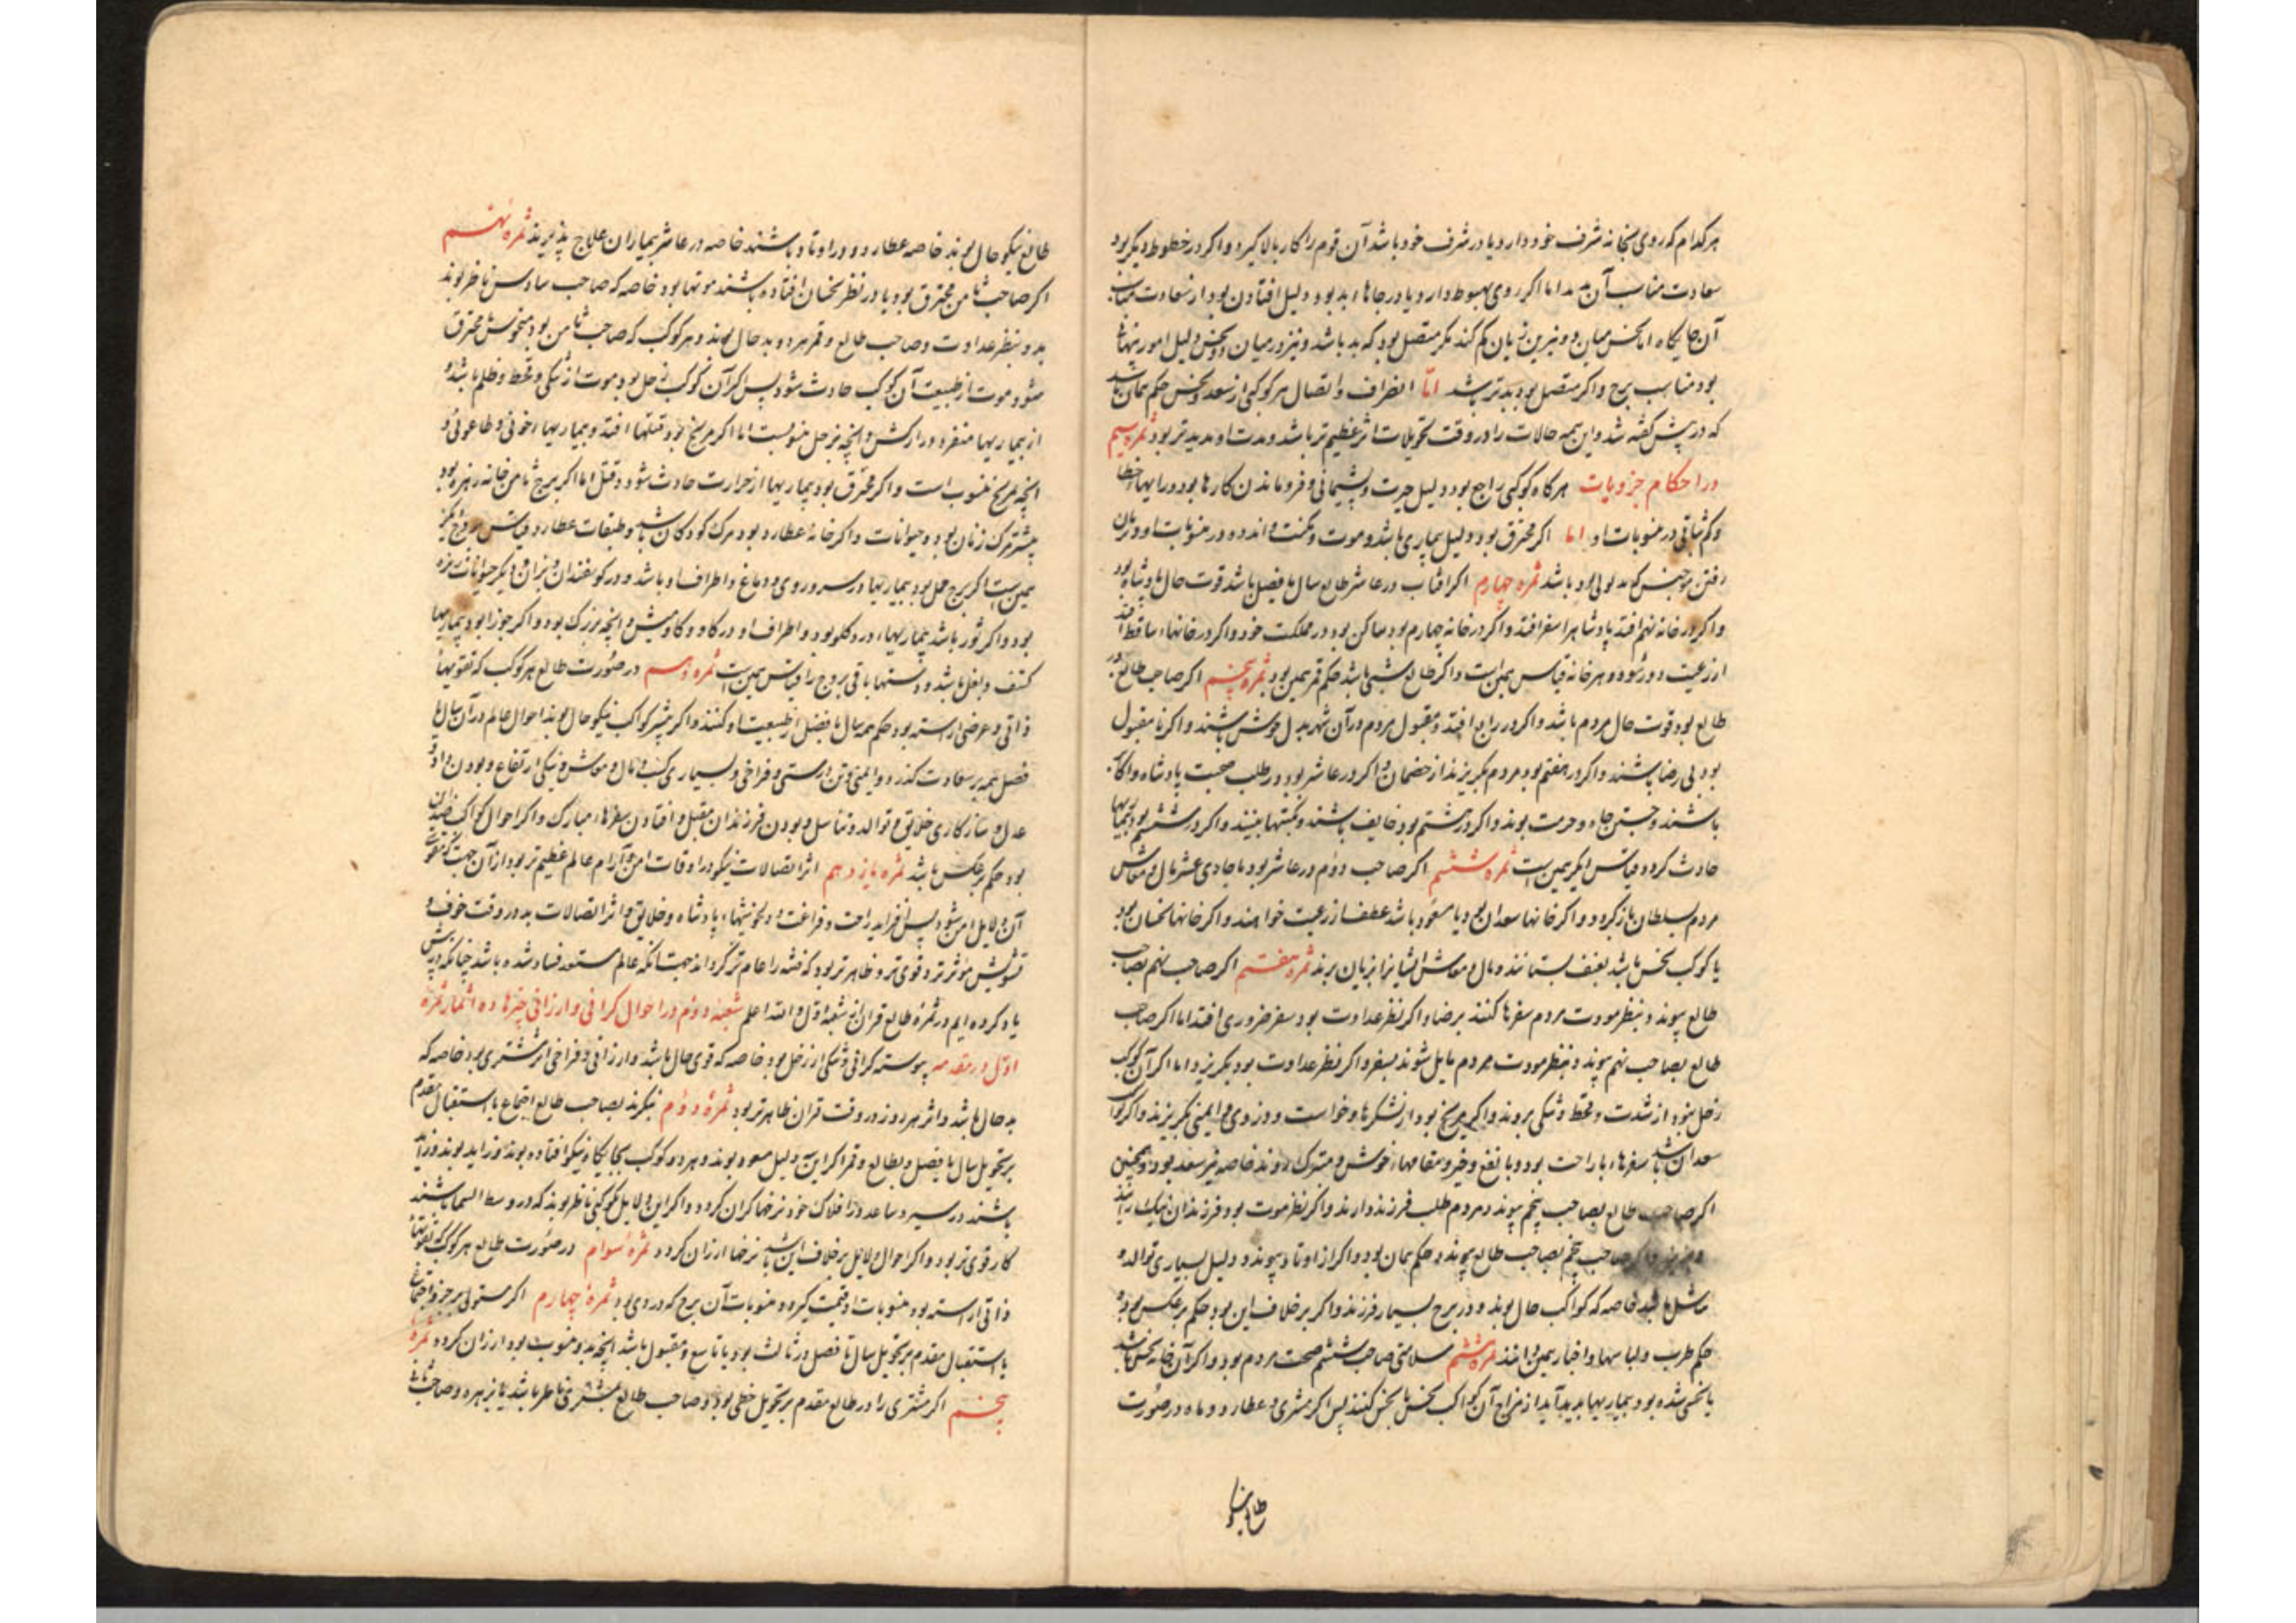 هر کدام که روی بخانه شرف خود دارد یا در شرف خود باشد آن قوم را کار بالا کیرد و اکر در خطوط دیکر بود
سعادت مناسب آن بد اما اکر روی بهبوط دارد یا در جاهاء بد بود دلیل افتادن بود از سعادت
آن جایکاه اما نحس میان دو نیرین زیان کم کند مکر متصل بود که بد باشد و نیز در میان دو نحس دلیل امور
بود مناسب برج و اکر متصل بود بدتر باشد اما انصراف و اتصال هر کوکبی از سعد و نحس حکم همان باشد
که در پیش کفته شد و این همه حالات را در وقت تحویلات اثر عظیم تر باشد و مدت او مدیدتر بود ثمره سیم
در احکام جزویات هر کاه کوکبی راجع بود دلیل حیرت و پشیمانی و فروماندن کارها بود و
و کم ثباتی در منسوبات او اما اکر محترق بود دلیل بیماری باشد و موت و نکبت و اندوه در منسوبات او و زیان
رفتن بود باشد ثمره چهارم اکر افتاب در عاشر طالع سال یا فصل باشد قوت حال پادشاه بود
و اکر در خانه نهم افتد پادشاه را سفر افتد و اکر در خانه چهارم بود ساکن بود در مملکت خود و اکر در خانهاء ساقط افتد
از رعیت دور شود و هر خانه قیاس همین است و اکر طالع شبی باشد حکم قمر همین بود ثمره پنجم اکر صاحب طالع در
طالع بود قوت حال مردم باشد و اکر در رابع افتد و مقبول مردم در آن شهر بدل خوش باشند و اکر نا مقبول
بود بی رضا باشند و اکر در هفتم بود مردم بکریزند از خصمان و اکر در عاشر بود در طلب صحبت پادشاه و اکابر
باشند و جستن جاه و حرمت بوند و اکر در هشتم بود خایف باشند و نکبتها بینند و اکر در ششم بود بیماریها
حادث کردد و قیاس دیکر همین است ثمره ششم اکر صاحب دوم در عاشر بود یا حادی عشر مال و معاش
مردم بسلطان باز کردد و اکر خانها سعدان بود یا مسعود باشد عطف از رعیت خواهند و اکر خانها نحسان بود
یا کوکب نحس باشد بعنف بستانند و مال و معاش ایشانرا بزیان برند ثمره هفتم اکر صاحب نهم بصاحب
طالع پیوند و بنظر مودت مردم سفرها کنند برضا و اکر نظر عداوت بود سفر ضروری افتد اما اکر صاحب
طالع بصاحب نهم پیوند و بنظر مودت مردم مایل شوند بسفر و اکر نظر عداوت بود بکریزند اما اکر آن کوکب
زحل بود از شدت و قحط و تنکی بروند و اکر مریخ بود از لشکرها و خواست و دزدی و ایمنی بکریزند و اکر
سعدان باشد سفرهاء با راحت بود و با نفع و خیر و مقامهاء خوش و متبرک روند خاصه نیز سعد بود و همچنین
اکر صاحب طالع بصاحب پنجم پیوند و مردم طلب فرزند دارند و اکر نظر مودت بود فرزندان نیک
و اکر صاحب پنجم بصاحب طالع پیوند و حکم همان بود و اکر از اوتاد پیوند و دلیل بسیاری توالد و
تناسل باشد خاصه که کواکب حال بوند و در برج بسیار فرزند و اکر بر خلاف این بود حکم بر عکس بود و
حکم طرب و لباسها و اخبار همین ثمره هشتم سلامتی صاحب ششم صحت مردم بود و اکر آن خانه نحس باشد
یا نحسی شده بود بیماریها پدید آید از مزاج آن کواکب نحس یا نحس کنند پس اکر مشتری و عطارد و ماه در صورت
طالع نیکو
طالع نیکو حال بوند خاصه عطارد و در اوتاد باشند خاصه در عاشر بیماران علاج پذیرند ثمره نهم
اکر صاحب ثامن محترق بود یا در نظر نحسان افتاده باشند موتها بود خاصه که صاحب سادس ناظر بوند
بدو بنظر عداوت و صاحب طالع و قمر هر دو بد حال بوند و هر کوکب که صاحب ثامن بود منحوس محترق
شود موت از طبیعت آن کوکب حادث شود پس اکر آن کوکب زحل بود موت از تنکی و قحط و ظلم باشد و
از بیماریها منفرد و از کشش و انچه بزحل منسوبست اما اکر مریخ بود قتلها افتد و بیماریهاء خونی و طاعونی و
انچه بمریخ منسوب است و اکر محترق بود بیماریها از حرارت حادث شود و قتل اما اکر برج ثامن خانه زهره بود
بیشتر مرک زنان بود و حیوانات و اکر خانه عطارد بود مرک کودکان باشد و طبقات عطارد و قیاس بروج نیز
همین است اکر برج حمل بود بیماریها در سر و روی و دماغ و اطراف او باشد و در کوسفندان و بزان و دیکر حیوانات
بود و اکر ثور باشد بیماریها در کلو بود و اطراف او در کاو و کاومیش و انچه بزرک بود و اکر جوزا بود بیماریها
کتف و بغل باشد و دستها باقی بروج را قیاس همین است ثمره دهم در صورت طالع هر کوکب که بقوتهاء
ذاتی و عرضی اراسته بود حکم همه سال یا فصل از طبیعت او کنند و اکر بیشتر کواکب نیکو حال بوند احوال عالم در آن سال یا
فصل همه بر سعادت کذرد و ایمنی و تن درستی و فراخی و بسیاری کسب و مال و معاش و نیکی ارتفاع و بودن داد و
عدل و سازکاری خلایق و توالد و تناسل و بودن فرزندان مقبل و افتادن سفرهاء مبارک و اکر احوال کواکب ضد این
بود حکم بر عکس باشد ثمره یازدهم اثر اتصالات نیکو در اوقات امن و آرام عالم عظیم تر بود از آن جهت که بقوت
آن دلایل امن شود پس افزاید راحت و فراغت و خوشیهاء پادشاه و خلایق و اثر اتصالات بد در وقت خوف و
تشویش مؤثرتر و قوی تر و ظاهر تر بود که فتنه را عام تر کرداند جهت آنکه عالم مستعد فساد شده باشد چنانکه در پیش
یاد کرده ایم در ثمره طالع قران از شعبه اول و الله اعلم شعبه دوم در احوال کرانی و ارزانی چیزها ده اثمار ثمره
اول در مقدمه پیوسته کرانی و تنکی از زحل بود خاصه که قوی حال باشد و ارزانی و فراخی از مشتری بود خاصه که
بد حال باشد و اثر هر دو در وقت قران ظاهرتر بود ثمره دوم بنکرند بصاحب طالع اجتماع یا استقبال مقدم
بر تحویل سال یا فصل و بطالع و قمر اکر این دلیل مسعود بوند و هر دو کوکب بجایکاه نیکو افتاده بوند و زاید بوند و زاید
باشند در سیر و صاعد در افلاک خود نرخها کران کردد و اکر این دلایل بکوکبی ناظر بوند که در وسط السما باشند
کار قوی تر بود و اکر احوال دلایل بر خلاف این باشد نرخها ارزان کردد ثمره سوام در صورت طالع هر کوکب که بقوتهاء
ذاتی اراسته بود منسوبات او قیمت کیرد و منسوبات آن برج که در وی بود ثمره چهارم اکر مستولی بر جزو اجتماع
یا استقبال مقدم بر تحویل سال یا فصل در ثالث بود یا تاسع و مقبول باشد انچه بدو منسوب بود ارزان کردد ثمره
پنجم اکر مشتری را در طالع مقدم بر تحویل حظی بود و صاحب طالع بمشتری ناظر باشد یا بزهره و صاحب